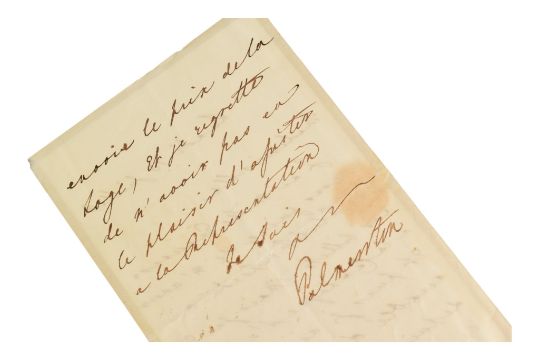 envoie le prix de la
Loge, Et je regrette
de n'avoir pas eu
le plaisir d'assister
a la Représentation
Je suis
Palmerston